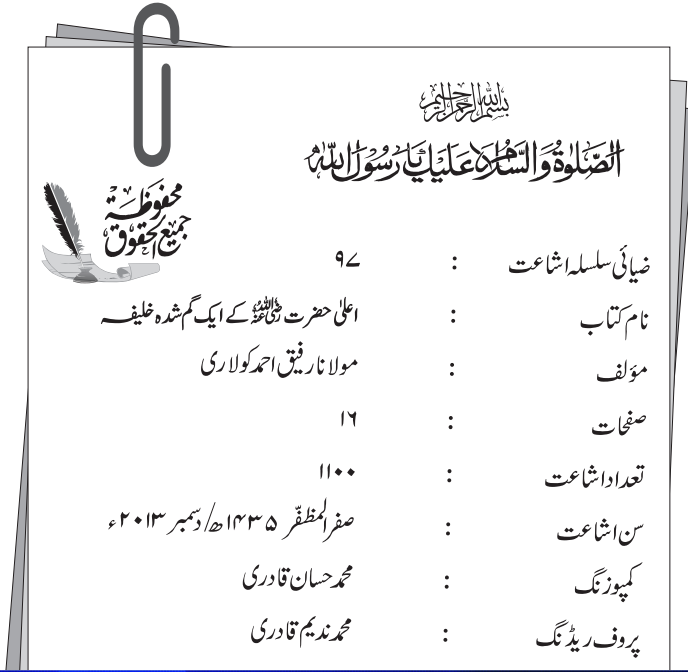 بسم اللہ الرحمن الرحیم
الصَّلٰوةُ وَالسَّلَامُ عَلَيْكَ يَا رَسُوْلَ اللّٰہ
جمیع الحقوق
محفوظة
ضیائی سلسلہ اشاعت : ۹۷
نام کتاب : اعلیٰ حضرت رضی اللہ عنہ کے ایک گم شدہ خلیفہ
مؤلف : مولانا رفیق احمد کولاری
صفحات : ۱۶
تعداد اشاعت : ۱۱۰۰
سن اشاعت : صفر المظفّر ۱۴۳۵ھ/دسمبر ۲۰۱۳ء
کمپوزنگ : محمد حسان قادری
پروف ریڈنگ : محمد ندیم قادری